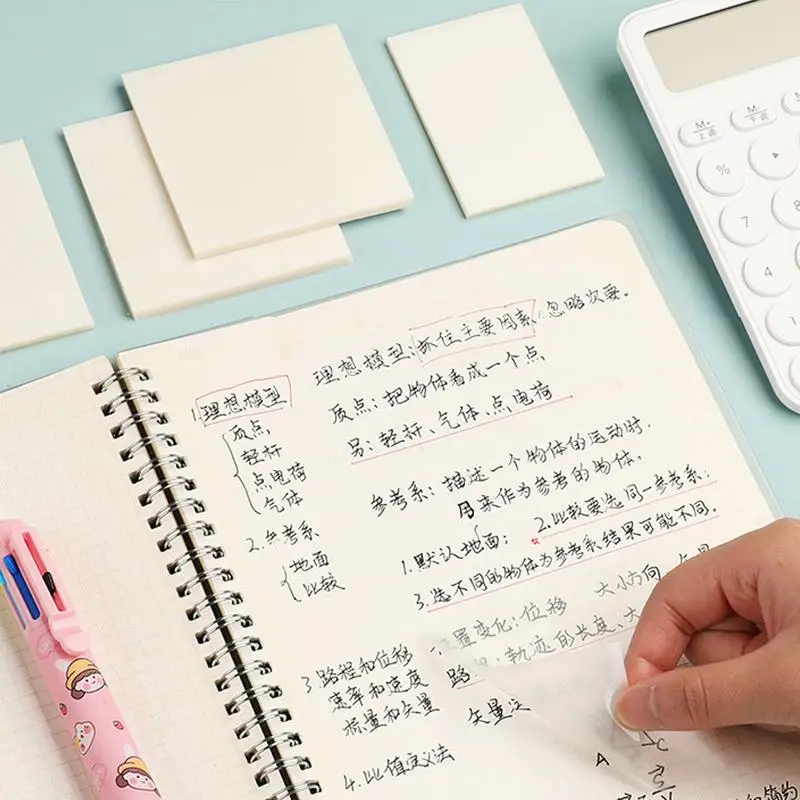 理想模型:抓住主要因素,忽略次要。
1.理想模型
质点:把物体看成一个点
质点
轻杆
点电荷
气体
另:轻杆、气体、点电荷
参考系:描述一个物体的运动时,
用来作为参考的物体.
2.参考系
地面
比较
1.默认地面;
2.比较要选同一参考系.
3.选不同的物体为参考系结果可能不同.
3.路程和位移
速率和速度
标量和矢量
位置变化:位移 大小方向
路 轨迹的长度、大
矢量
4.比值定义法
A
C
M+
上调
M-
下调
%
▸
7
8
4
1